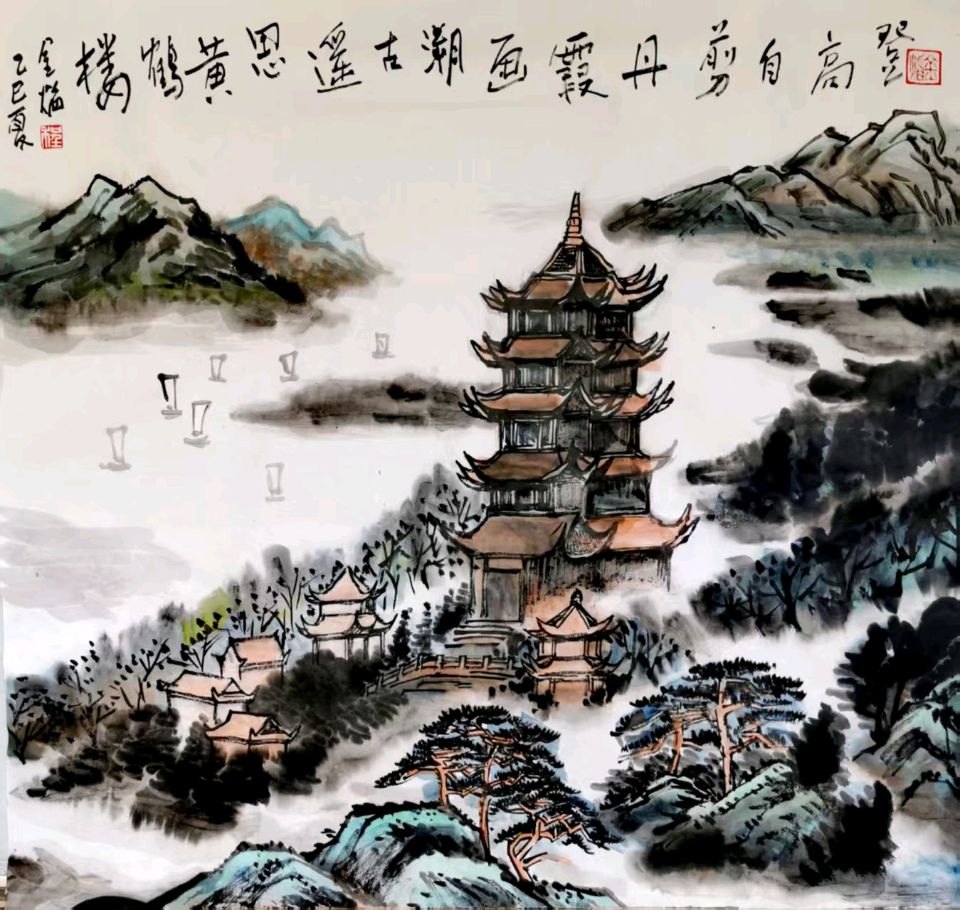 登高自剪丹霞画溯古遥思黄鶴楼
金焰
乙巳夏